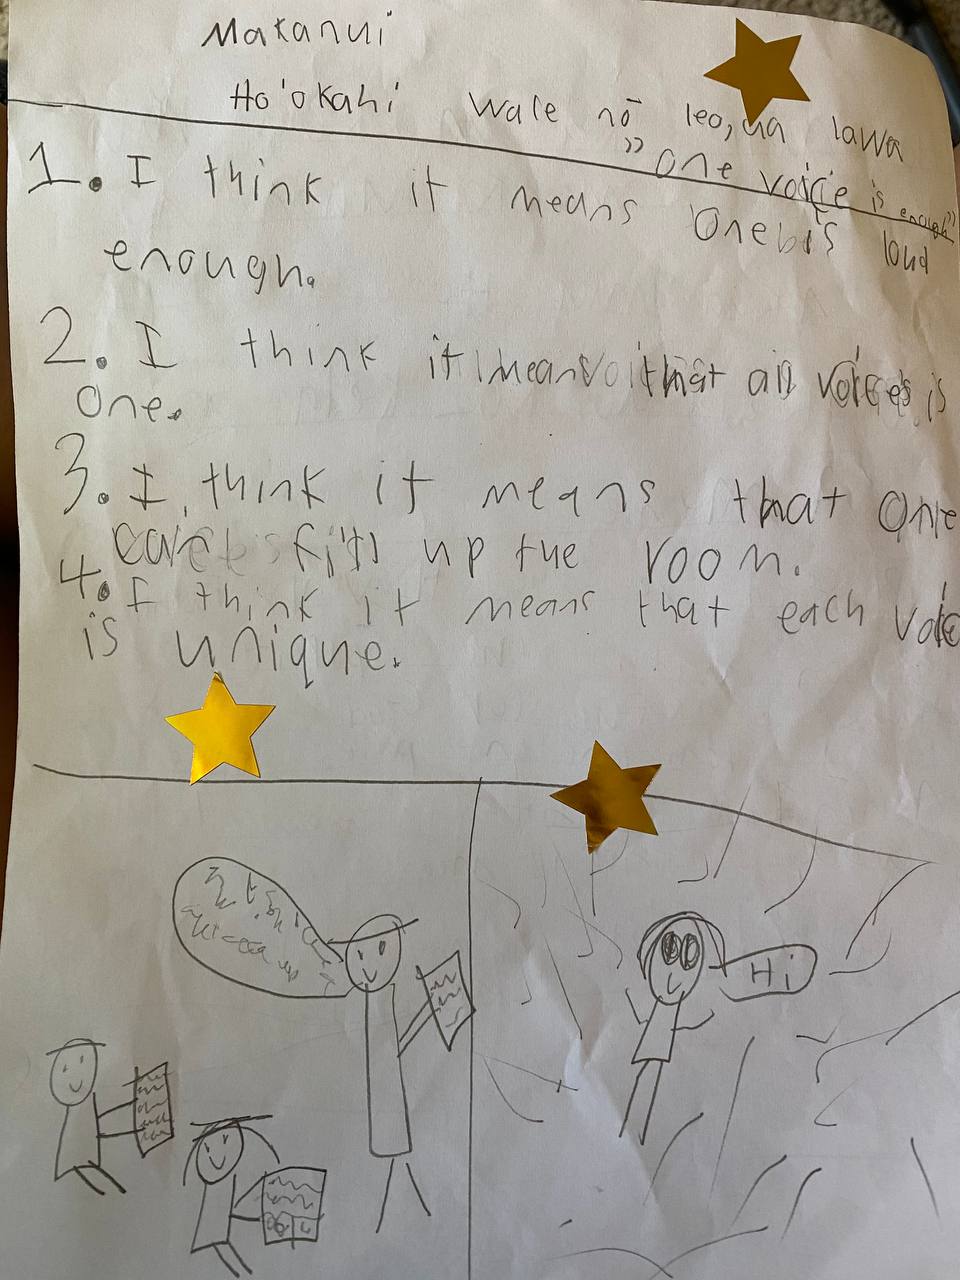 Makanui
Ho'okahi wale nō leo, ua lawa
"one voice is enough"
1. I think it means one is loud
enough.
2. I think it means that all voices is
one.
3. I think it means that one
fills up the room.
4. I think it means that each voice
is unique.
Hi